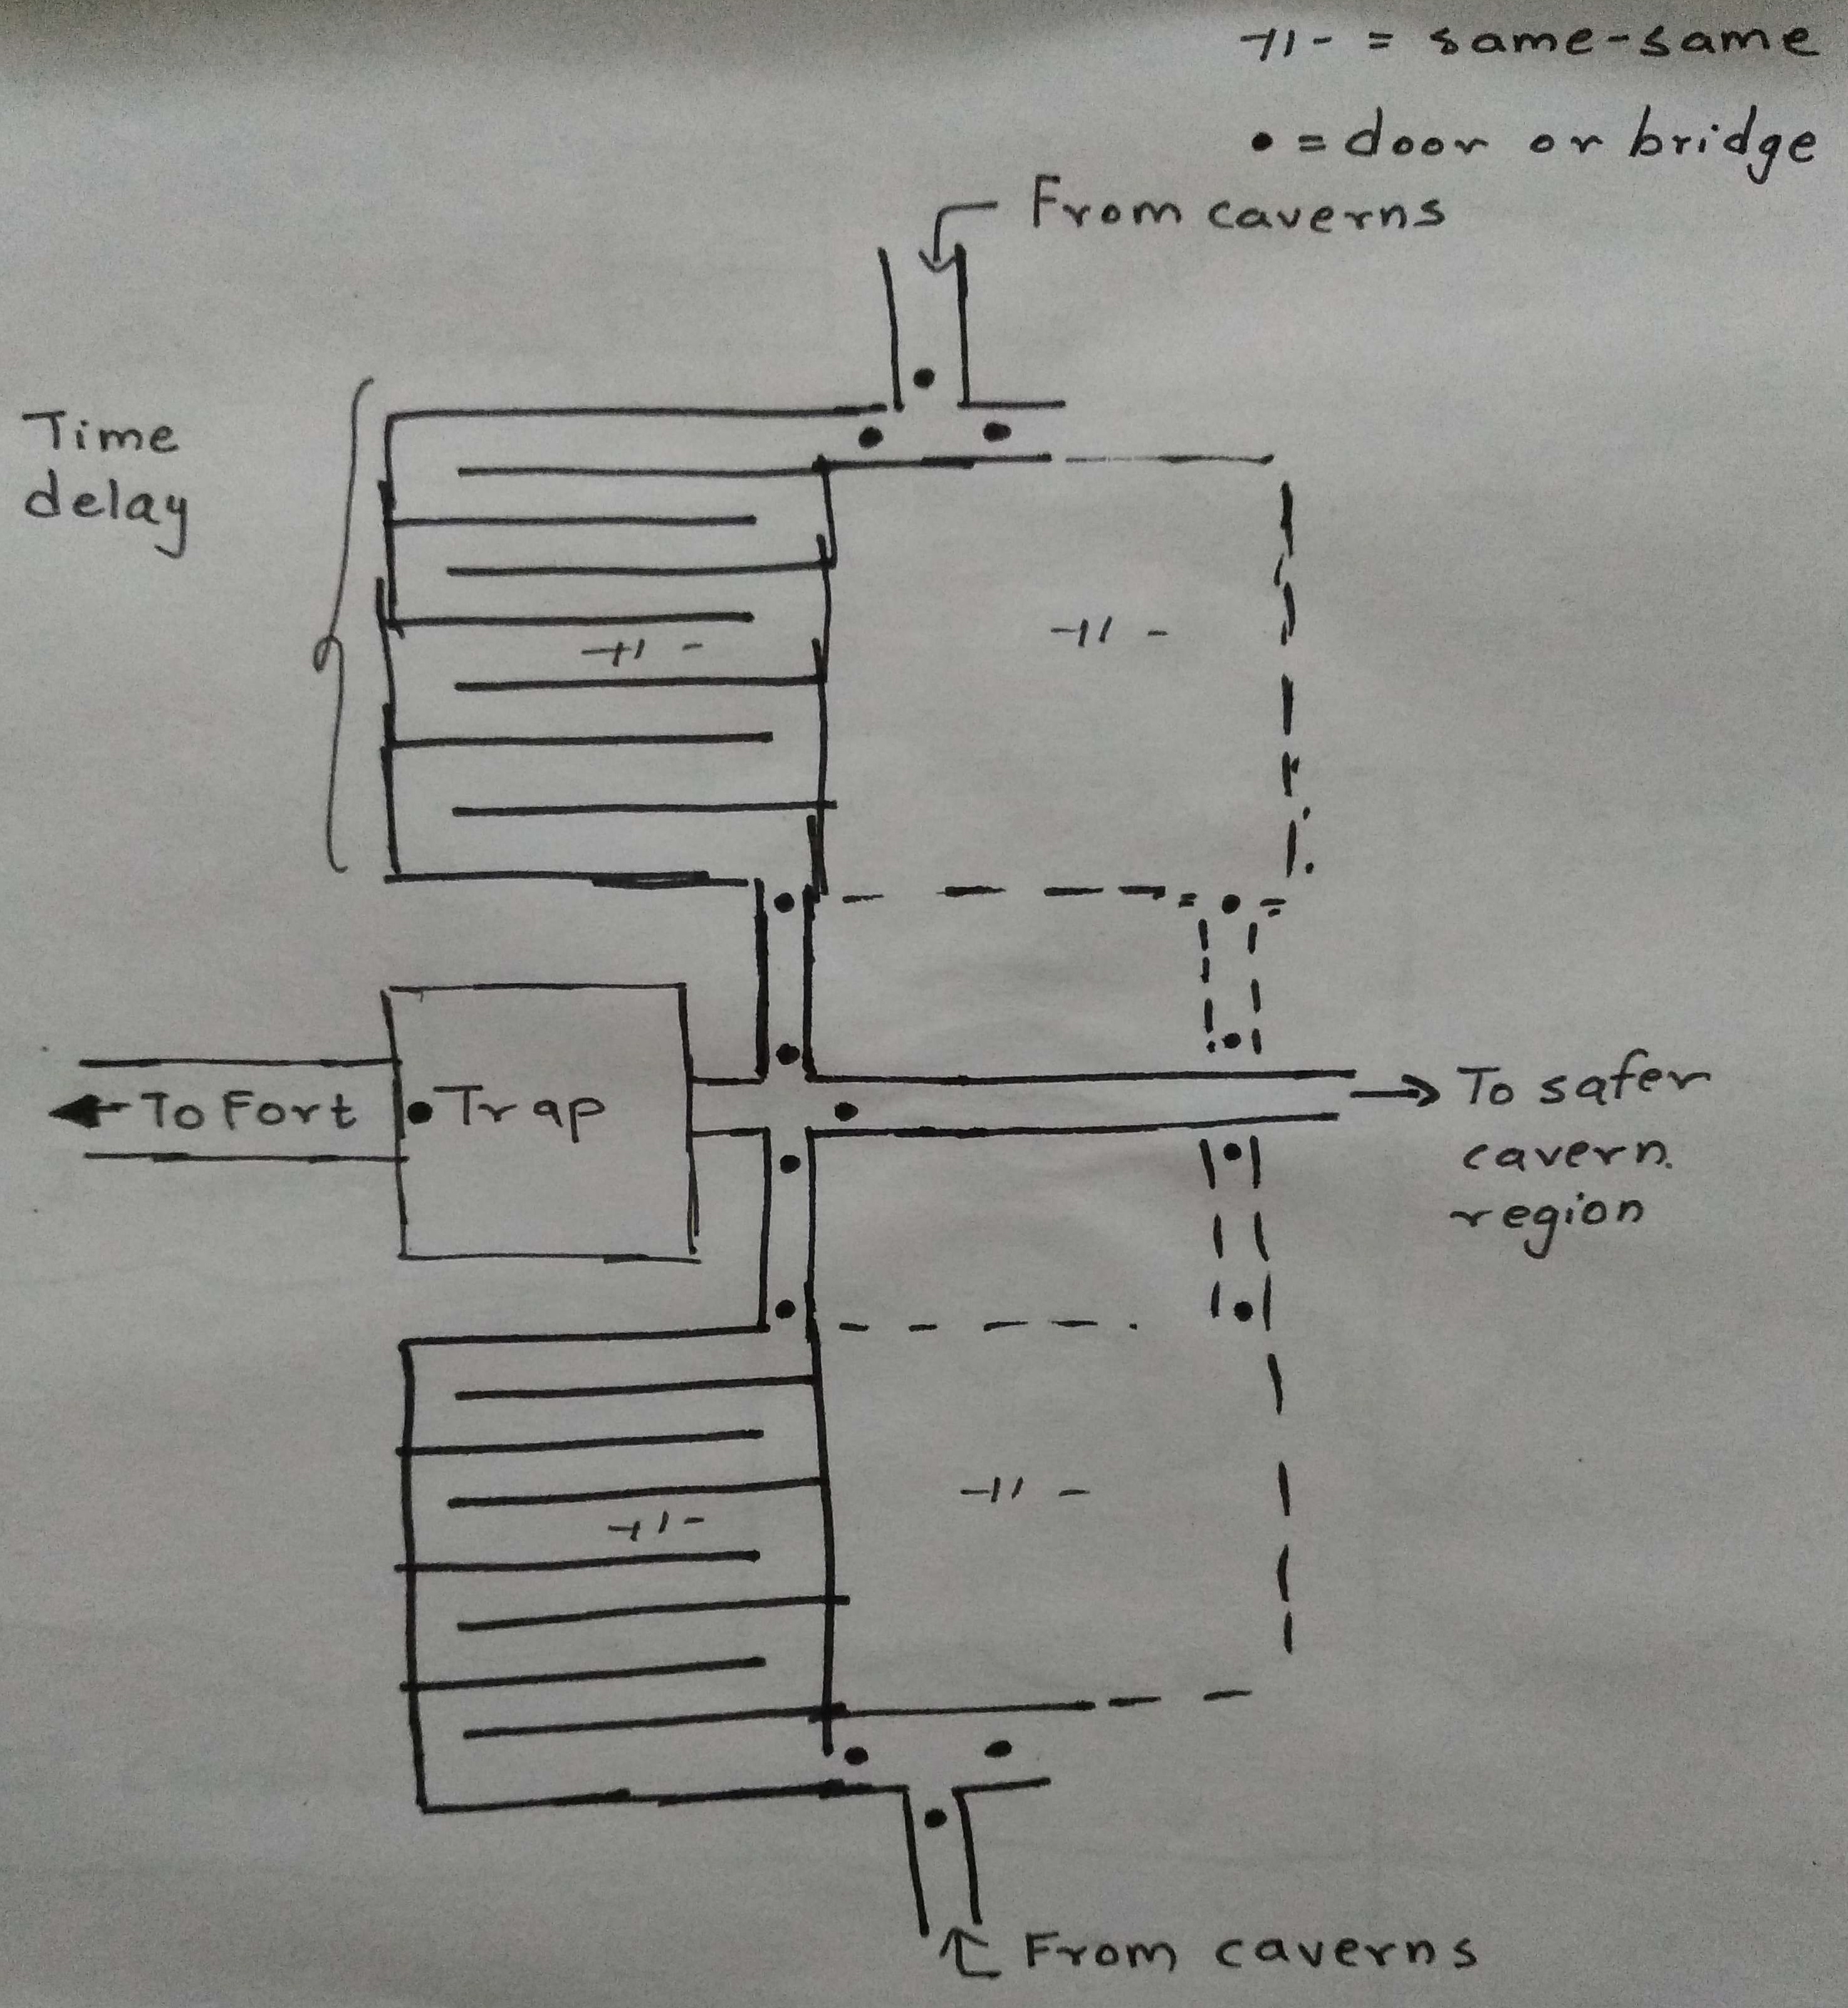 -11- = same-same
• = door or bridge
From caverns
Time
delay
-11-
-11-
To Fort
Trap
To safer
cavern
region
-11-
-11-
From caverns